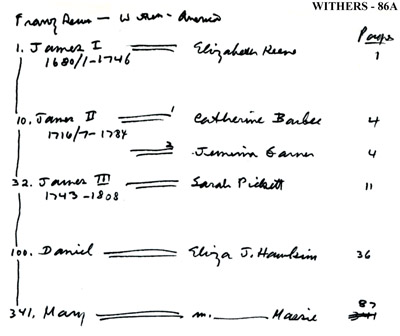 WITHERS - 86A
Pages
1. James I Elizabeth Keene 1
1680/1-1746
10. James II 1 Catherine Barbee 4
1716/7-1784
2 Jemima Garner 4
32. James III Sarah Pickett 11
1743-1808
100. Daniel Eliza J. 36
341. Mary m. 87